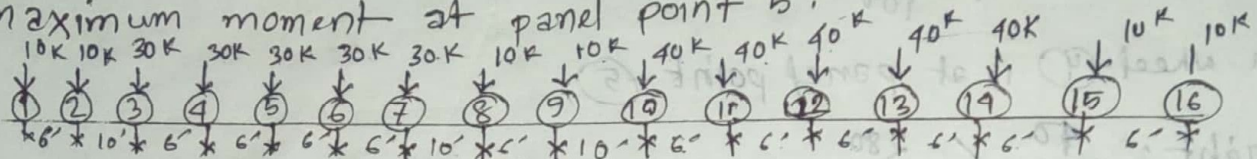 maximum moment at panel point 5.
10K 10K 30K 30K 30K 30K 30K 10K 10K 40K 40K 40K 40K 40K 10K 10K
1 2 3 4 5 6 7 8 9 10 11 12 13 14 15 16
6' 10' 6' 6' 6' 6' 10' 6' 10' 6' 6' 6' 6' 6' 6'